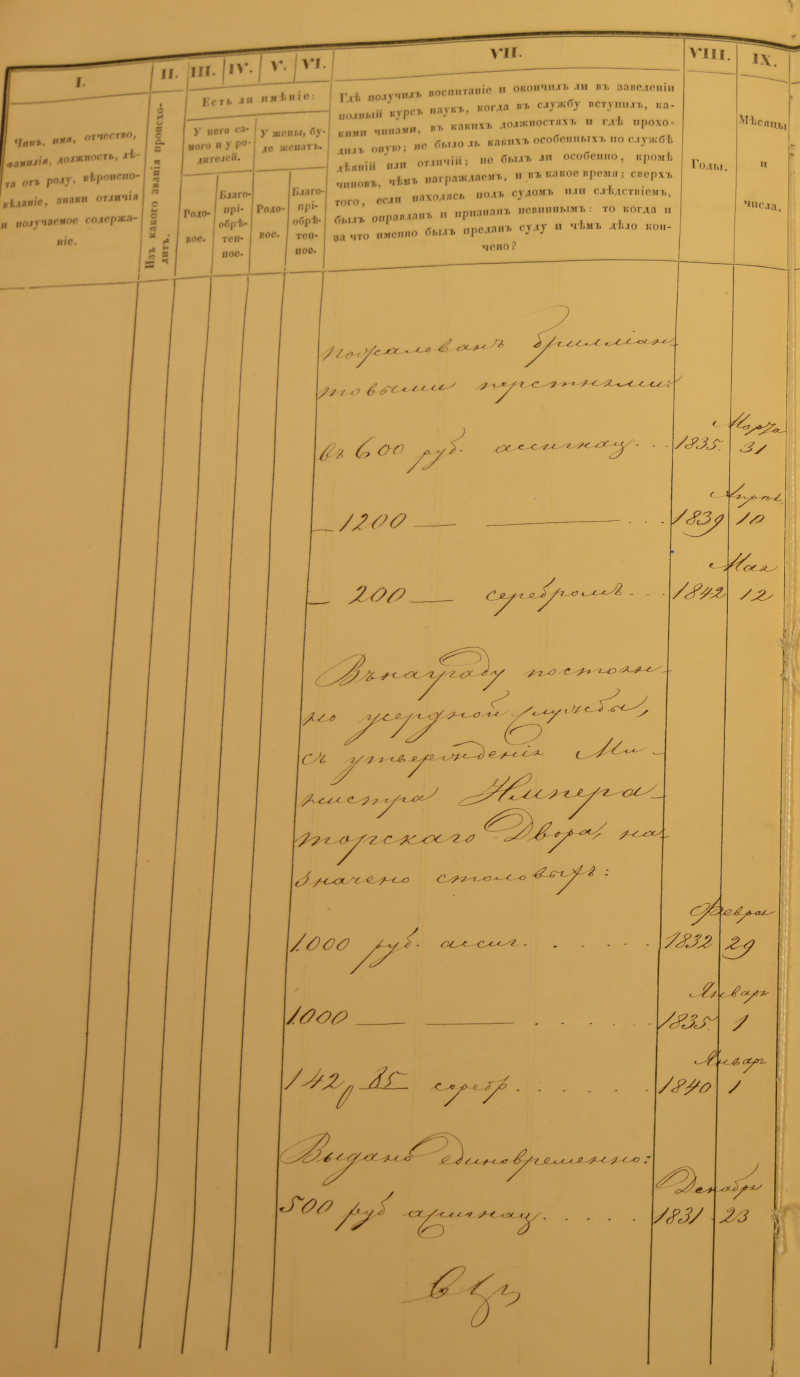 I. II. III. IV. V. VI. VII. VIII. IX.
Чинъ, имя, отчество,
фамилія, должность, лѣ-
та отъ роду, вѣроиспо-
вѣданіе, знаки отличія
и получаемое содержа-
ніе.
Изъ какого званія происхо-
дитъ.
Есть ли имѣніе:
У него са-
мого и у ро-
дителей.
У жены, бу-
де женатъ.
Родо-
вое.
Благо-
прі-
обрѣ-
тен-
ное.
Родо-
вое.
Благо-
прі-
обрѣ-
тен-
ное.
Гдѣ получилъ воспитаніе и окончилъ ли въ заведеніи
полный курсъ наукъ, когда въ службу вступилъ, ка-
кими чинами, въ какихъ должностяхъ и гдѣ прохо-
дилъ оную; не было ль какихъ особенныхъ по службѣ
дѣяній или отличій; не былъ ли особенно, кромѣ
чиновъ, чѣмъ награждаемъ, и въ какое время; сверхъ
того, если находясь подъ судомъ или слѣдствіемъ,
былъ оправданъ и признанъ невиннымъ: то когда и
за что именно былъ преданъ суду и чѣмъ дѣло кон-
чено?
Годы.
Мѣсяцы
и
числа.
Пожалованъ брилліан-
товыми перстнями:
въ 600 руб. ассигнац. . . 1835. Марта 31
— 1200 — — . . . 1839 Апрѣл. 10
— 200 — серебромъ . . . 1842 Мая 12
Въ награду постоян-
но усердной службы,
съ утвержденія Ми-
нистра Импера-
торскаго Двора, на-
значено столовыхъ:
1000 руб. ассиг. . . . . . 1832 Февра 29
1000 — — . . . . . 1835. Январ 1
142 р 85 серебр . . . . . 1840 Январ 1
Выдано единовременно:
500 руб ассигнац. . . . . 1831 Декабр 23